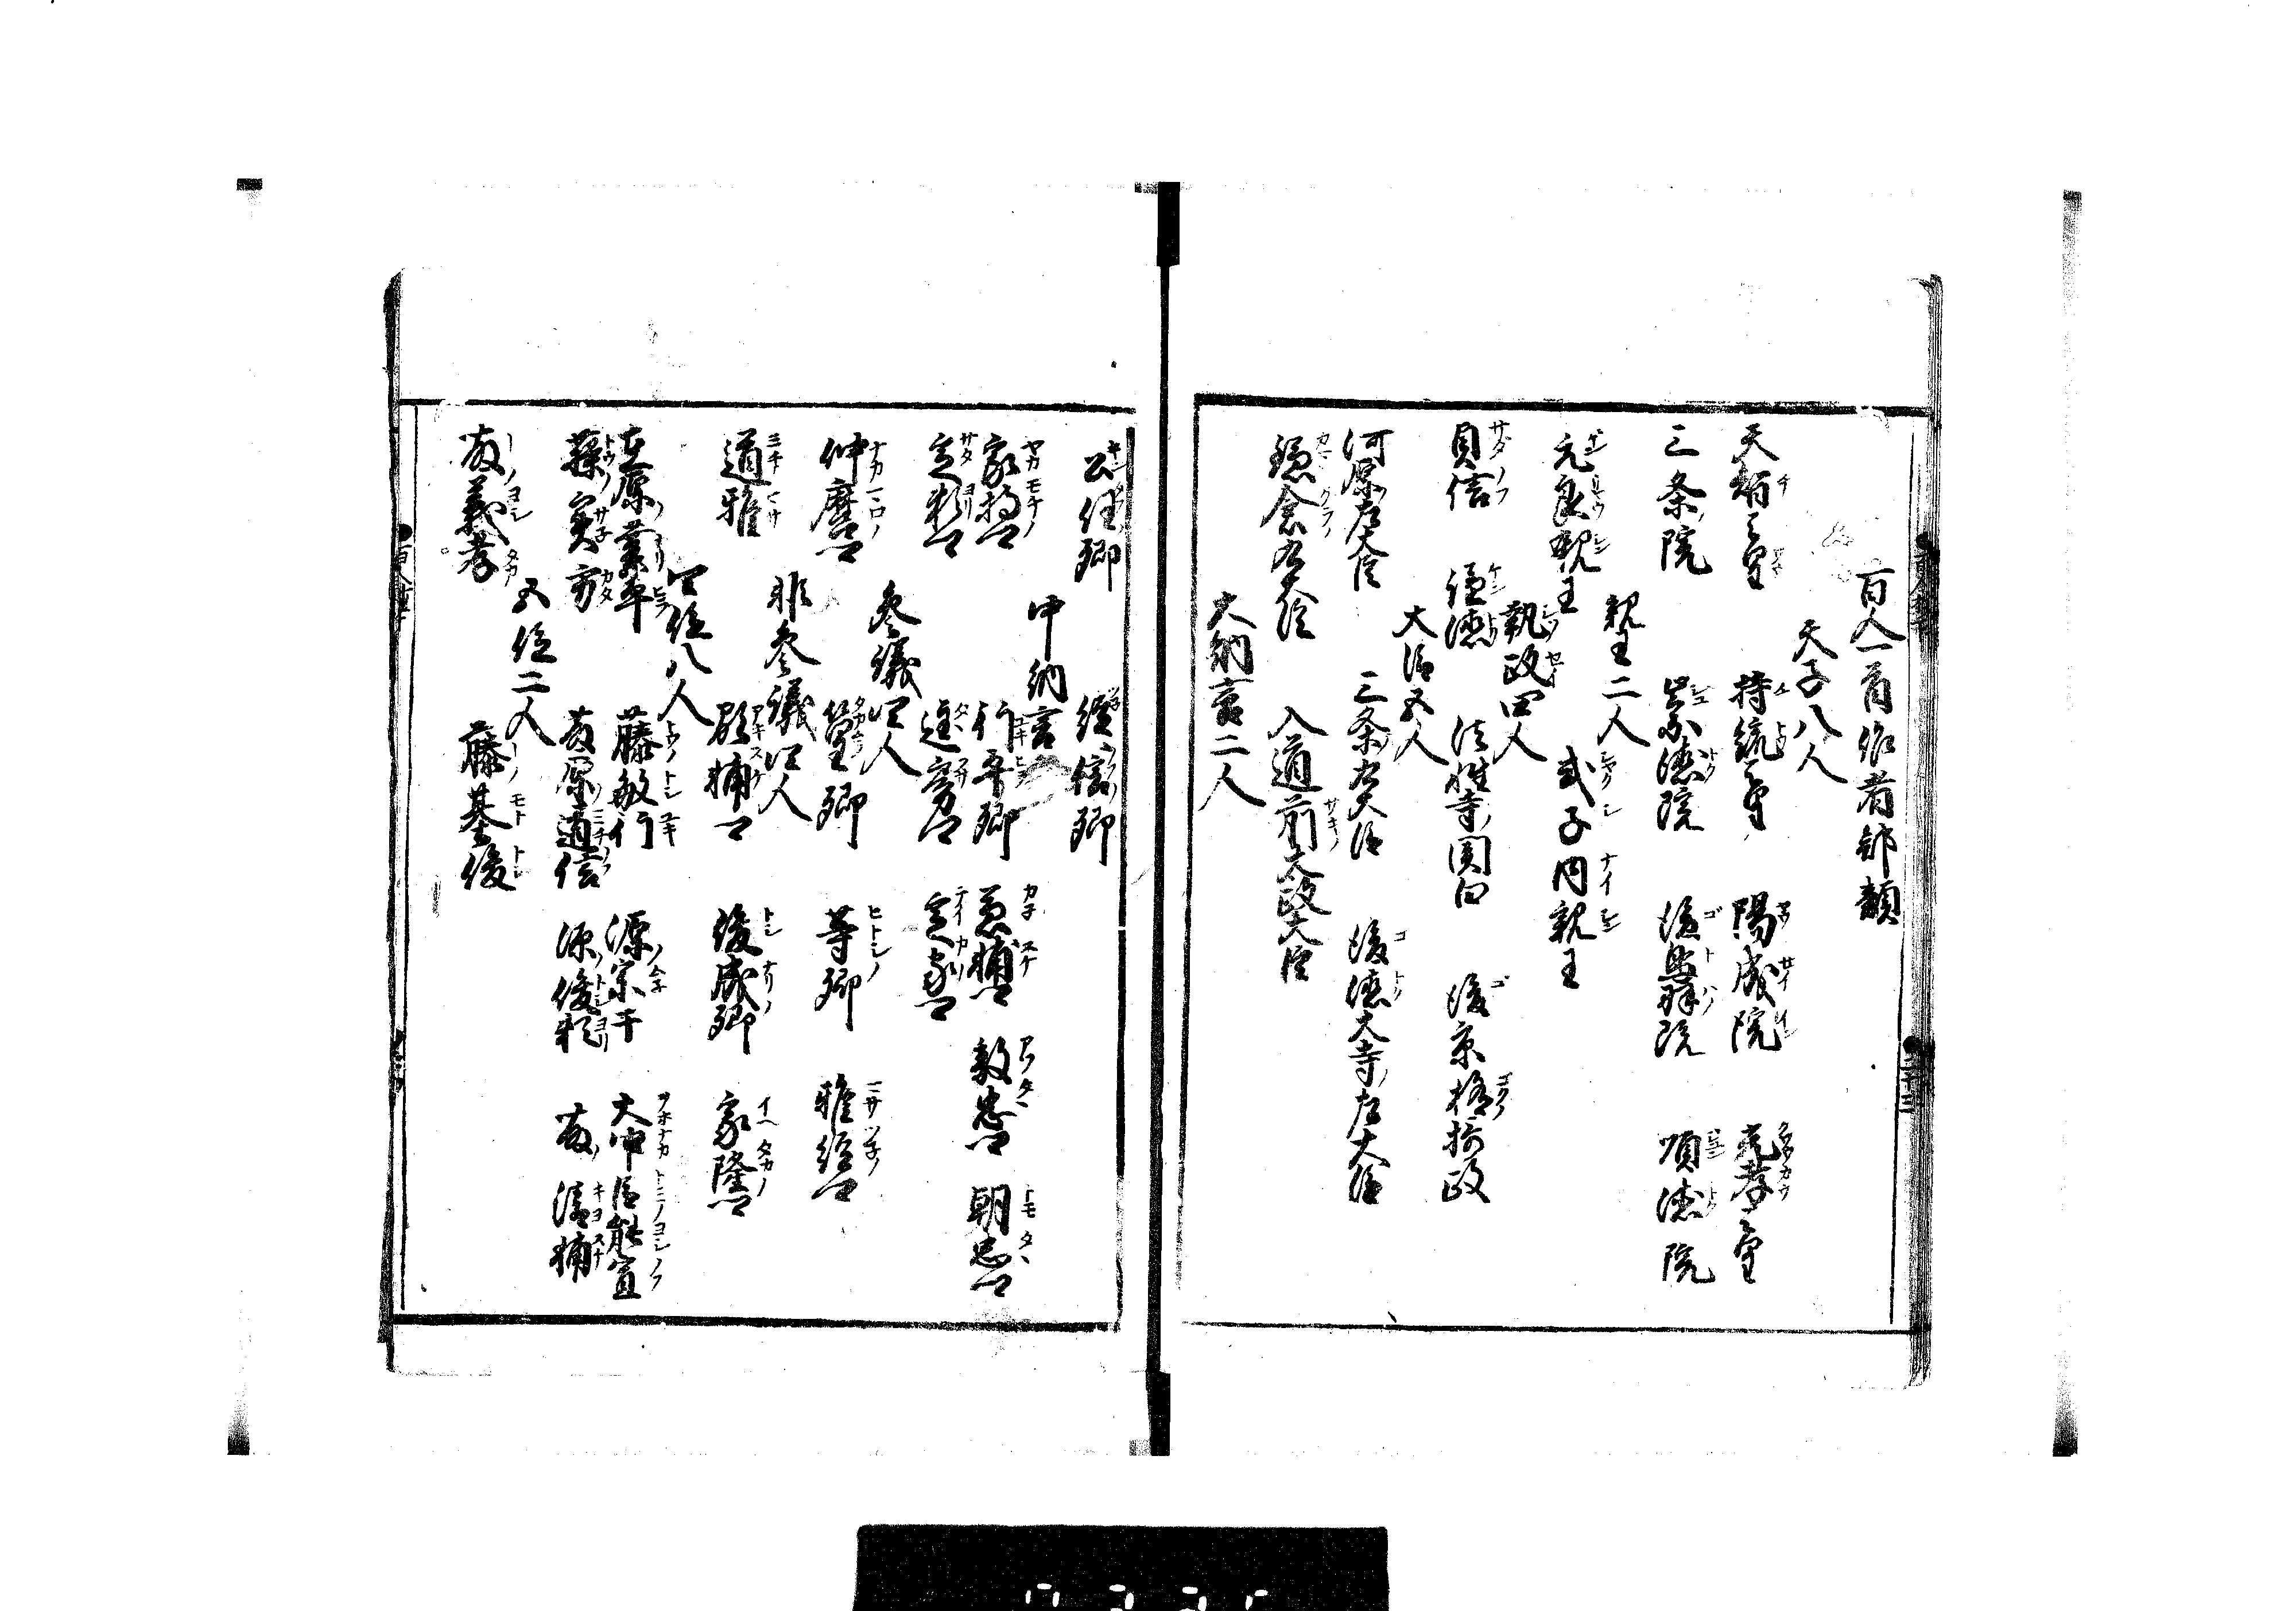 百人一首作者部類
天子八人
天智天皇 持統天皇 陽成院 光孝天皇
三条院 崇徳院 後鳥羽院 順徳院
親王二人
元良親王 式子内親王
執政四人
貞信 謙徳 法性寺関白 後京極摂政
大臣五人
河原左大臣 三条右大臣 後徳大寺左大臣
鎌倉右大臣 入道前太政大臣
大納言二人
公任卿 経信卿
中納言
家持卿 行平卿 兼輔卿 敦忠卿 朝忠卿
定頼卿 匡房卿 定家卿
参議四人
仲麿 篁卿 等卿 雅経卿
非参議四人
道雅 顕輔卿 俊成卿 家隆卿
四位八人
在原業平 藤敏行 源宗于 大中臣能宣
藤実方 藤原道信 源俊頼 藤清輔
五位二人
藤義孝 藤基俊